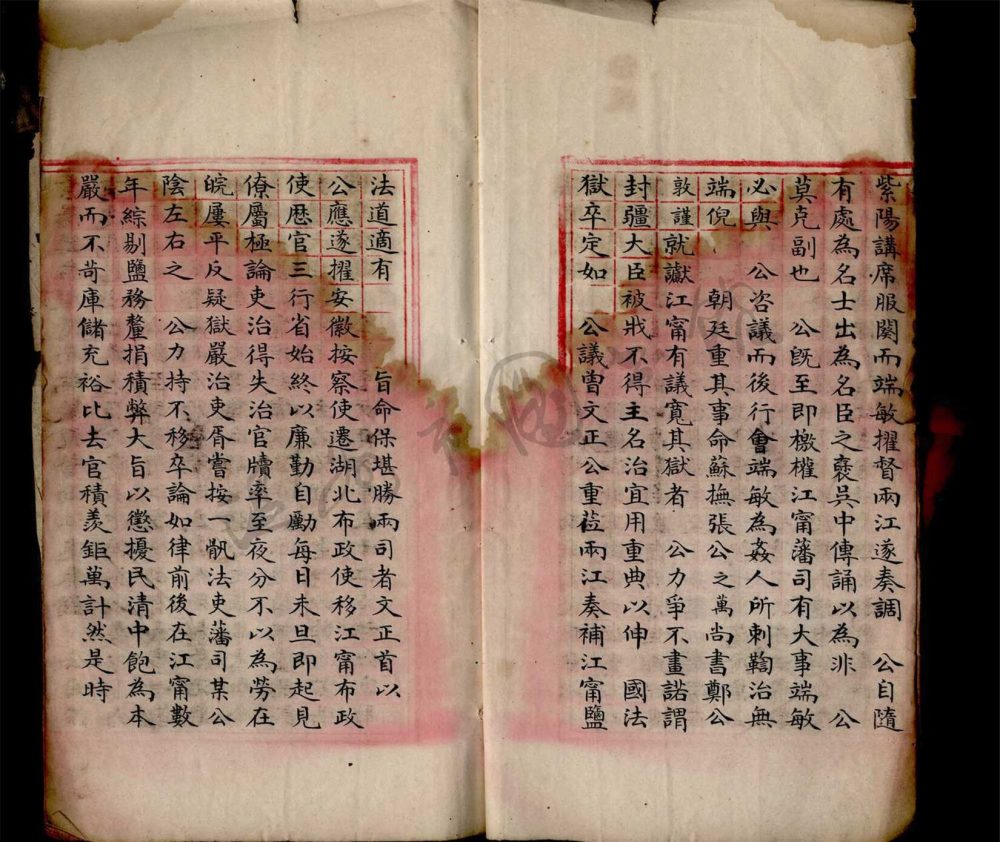 紫陽講席服闋而端敏擢督兩江遂奏調　公自隨
有處為名士出為名臣之襃吳中傳誦以為非　公
莫克副也　公旣至即檄權江甯藩司有大事端敏
必與　公咨議而後行會端敏為姦人所刺鞫治無
端倪　朝廷重其事命蘇撫張公之萬尚書鄭公
敦謹就讞江甯有議寬其獄者　公力爭不畫諾謂
封疆大臣被戕不得主名治宜用重典以伸　國法
獄卒定如　公議曾文正公重莅兩江奏補江甯鹽
法道適有　旨命保堪勝兩司者文正首以
公應遂擢安徽按察使遷湖北布政使移江甯布政
使歷官三行省始終以廉勤自勵每日未旦即起見
僚屬極論吏治得失治官牘率至夜分不以為勞在
皖屢平反疑獄嚴治吏胥嘗按一骫法吏藩司某公
陰左右之　公力持不移卒論如律前後在江甯數
年綜剔鹽務釐捐積弊大旨以懲擾民清中飽為本
嚴而不苛庫儲充裕比去官積羨鉅萬計然是時